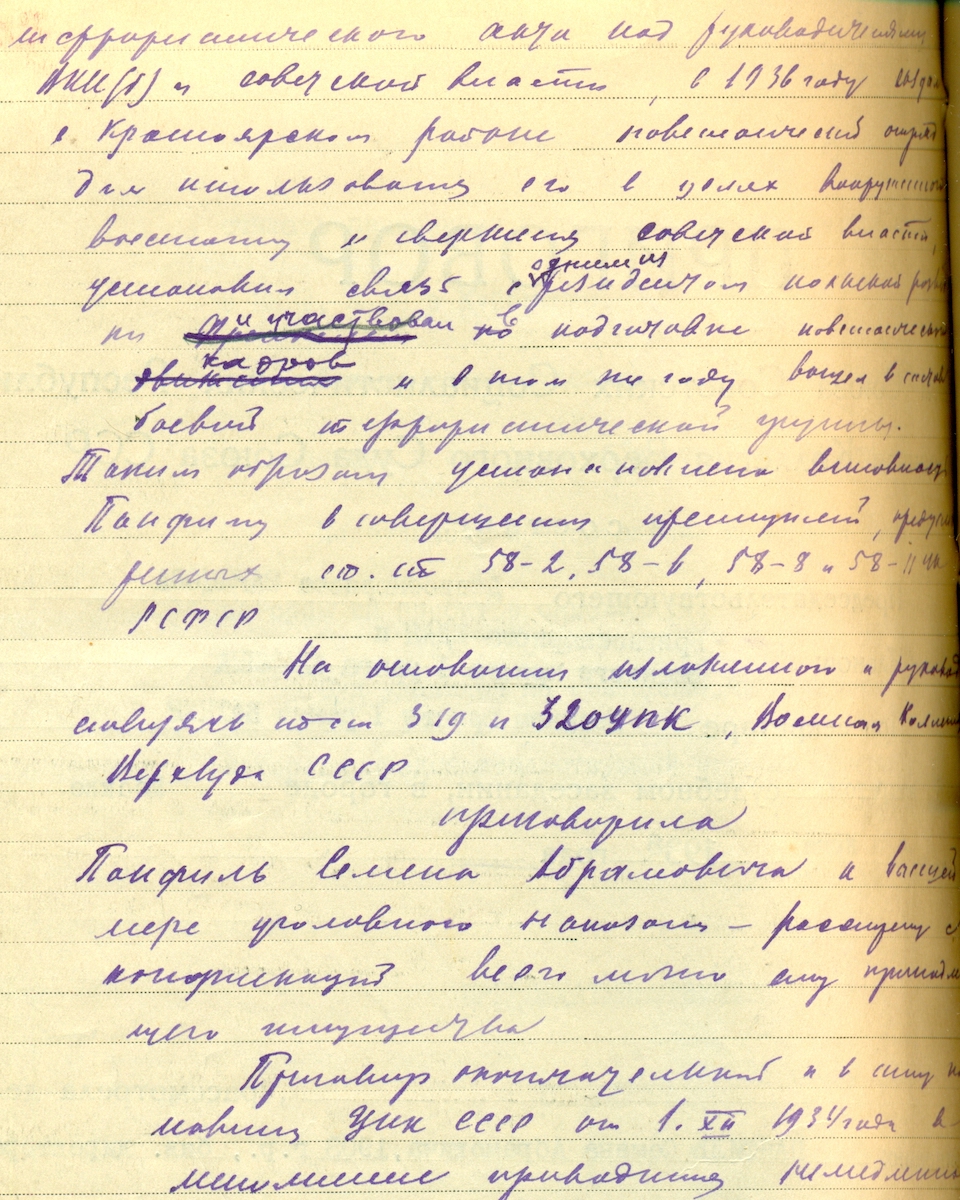 террористического акта над руководителями
ВКП(б) и советской власти, в 1936 году создал
в Красноярском районе повстанческий отряд
для использования его в целях вооруженного
восстания и свержения советской власти,
установил связь с одним из резидентом польской развед
ки и участвовал в подготовке повстанческих
кадров и в том же году вошел в состав
боевой террористической группы.
Таким образом установлена виновность
Панфиль в совершении преступлений, предусмот
ренных ст. ст. 58-2, 58-6, 58-8 и 58-11 УК
РСФСР
На основании изложенного и руковод
ствуясь ст ст 319 и 320 УПК, Военная Коллегия
Верхсуда СССР
приговорила
Панфиль Семена Абрамовича к высшей
мере уголовного наказания – расстрелу с
конфискацией всего лично ему принадлежа
щего имущества
Приговор окончательный и в силу поста
новления ЦИК СССР от 1.XII 1934 года в
исполнение приводится немедленно